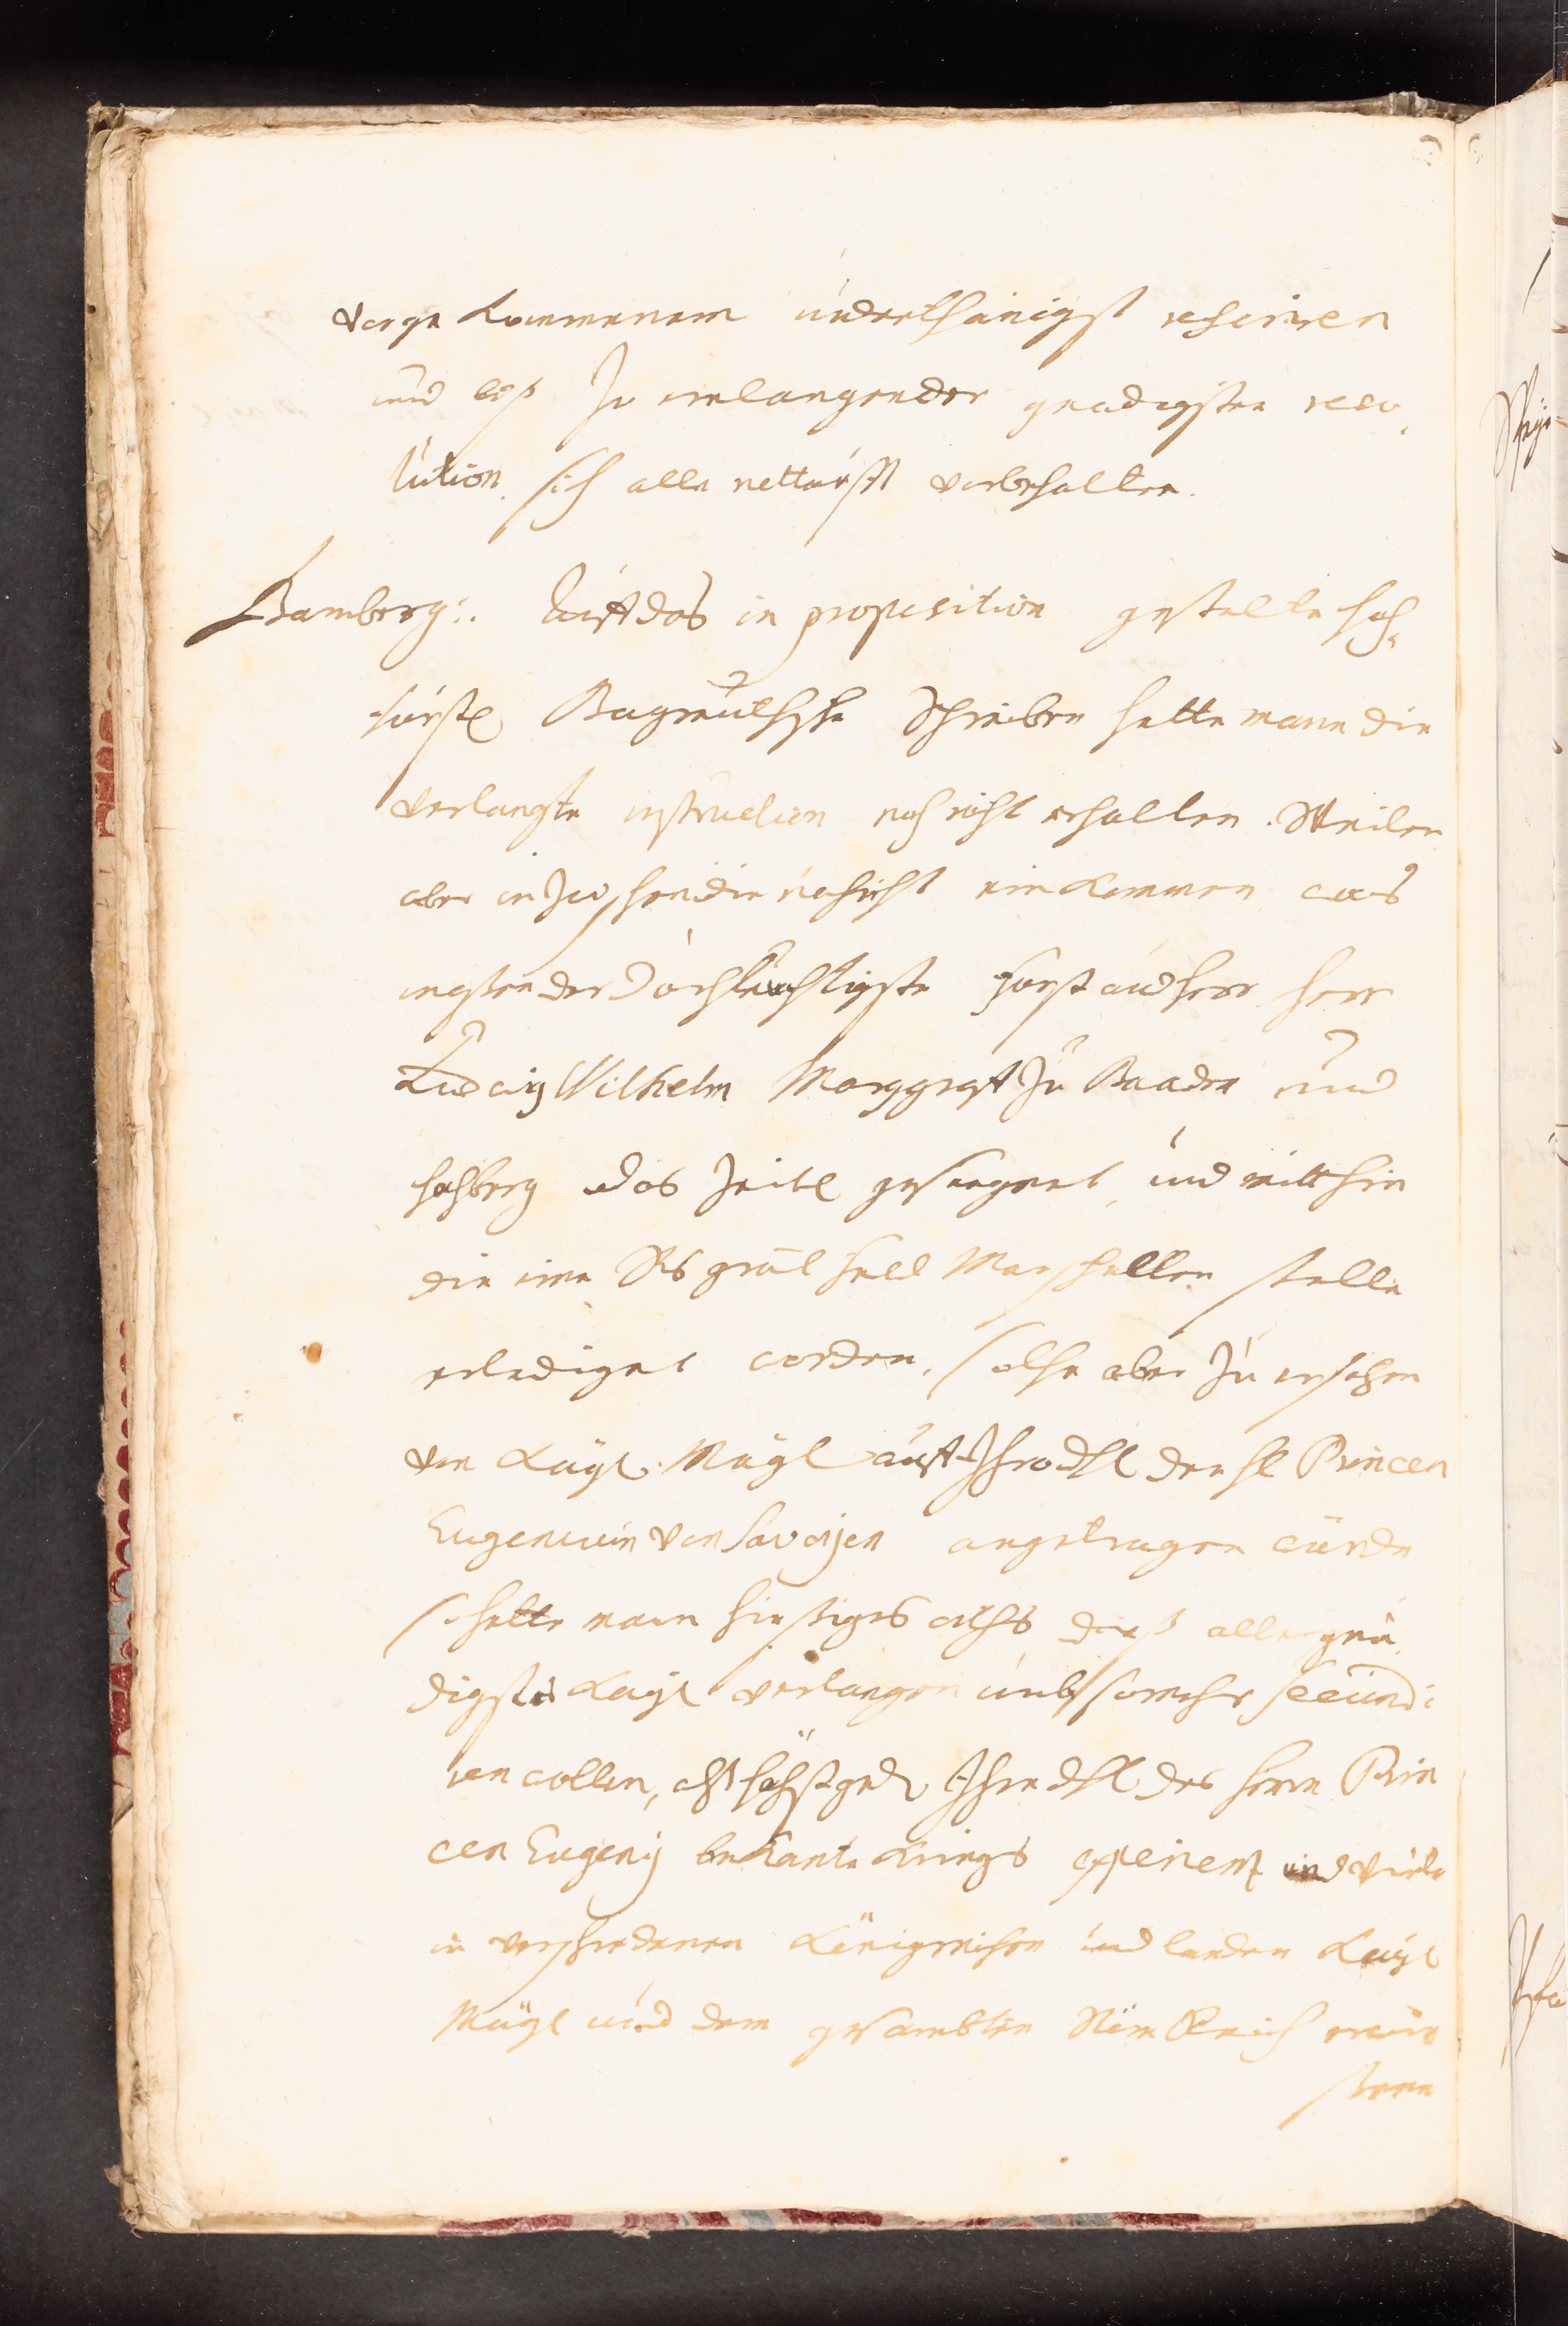 vorgekommenem underthänigst referiren
und biß zu einlangender gnädigsten reso,
lution, sich alle notturfft vorbehalten.
Bamberg: Auff das in proposition gestelte hoch,
fürstl Bayreuthsche Schreiben hette mann die
verlangte instruction noch nicht erhalten. Weilen
aber inzwischen die nachricht einkommen was
masßen der Durchleuchtigste Fürst und Herr Herr
Ludwig Wilhelm Marggraff zu Baaden und
Hochberg das Zeitl gesegnet, und mitthin
die eine Rs grãl Feld Marschallen stelle
erlediget worden, solche aber zu ersetzen
von Kayl. Mayt auff Ihro dhl den H Princen
Eugenium von Savoijen angetragen würde
so hette man hießiges orths dieß allergnä,
digste Kayl verlangen umb so mehr secundi
ren wollen, alß höchstged Ihro dhl des Herrn Prin
cen Eugenij bekante Kriegs experienz und viele
in verschiedenen Königreichen und landen Kayl
Mayt und dem gesambten Röm Reich erwie
ßene